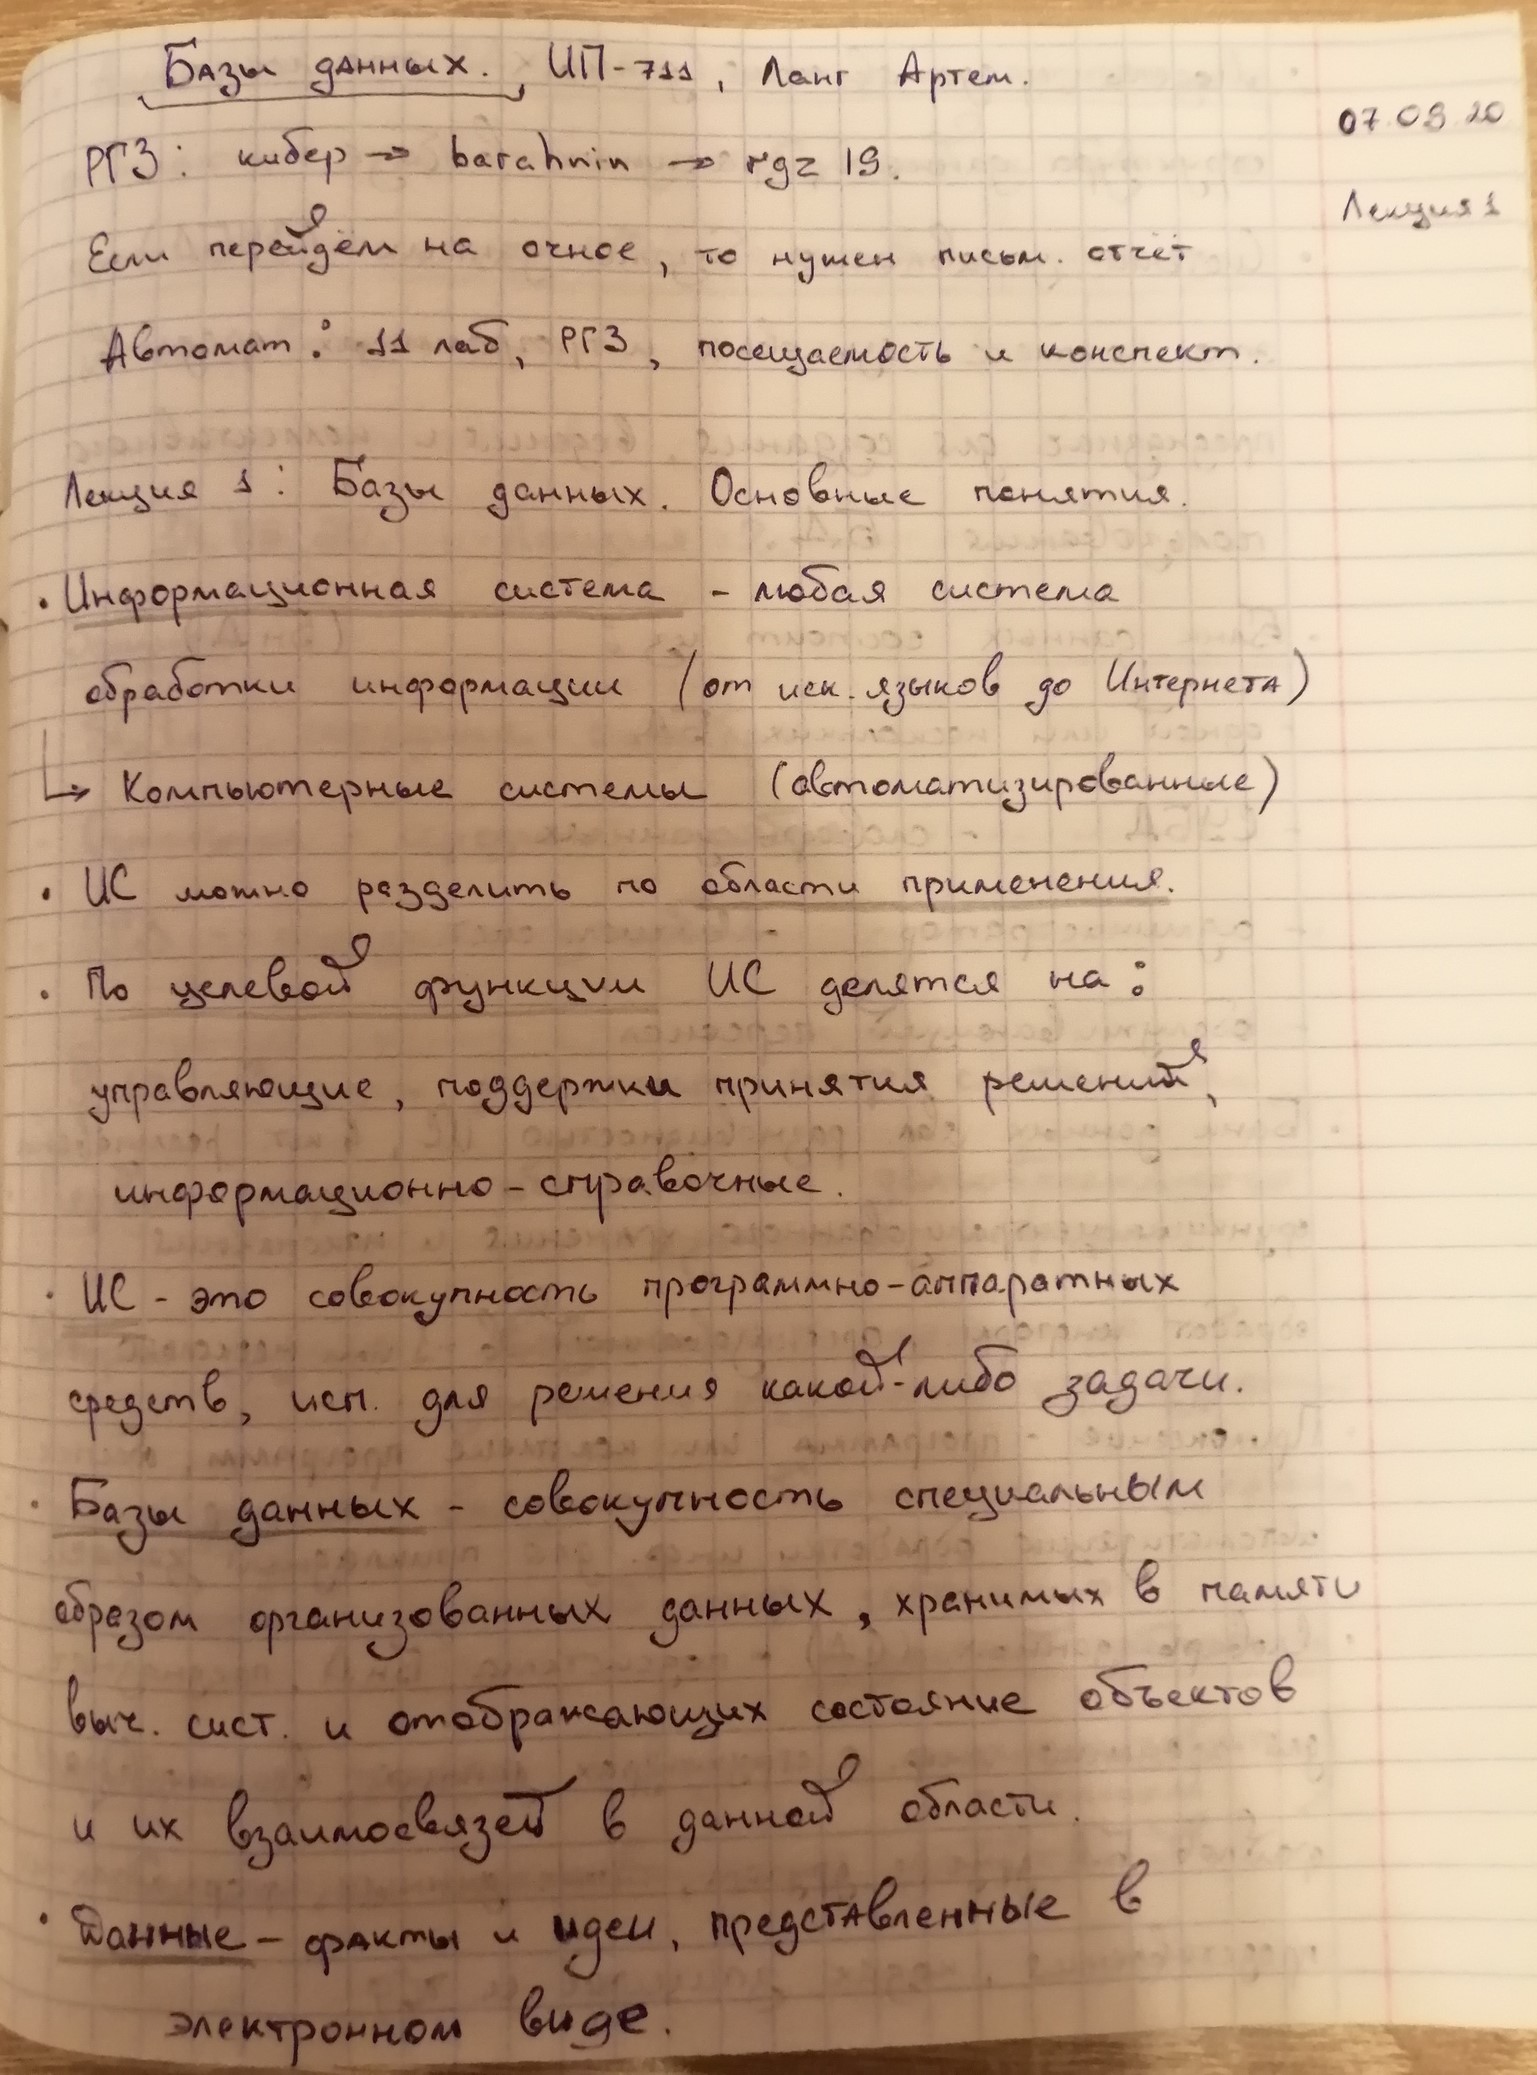 Базы данных. ИП-711, Ланг Артем.
07.09.20
РГЗ: кибер → barahnin → rgz 19.
Лекция 1
Если перейдём на очное, то нужен письм. отчёт
Автомат: 11 лаб, РГЗ, посещаемость и конспект.
Лекция 1: Базы данных. Основные понятия.
• Информационная система - любая система
обработки информации (от иск. языков до Интернета)
↳ Компьютерные системы (автоматизированные)
• ИС можно разделить по области применения.
• По целевой функции ИС делятся на:
управляющие, поддержки принятия решений,
информационно-справочные.
• ИС - это совокупность программно-аппаратных
средств, исп. для решения какой-либо задачи.
• Базы данных - совокупность специальным
образом организованных данных, хранимых в памяти
выч. сист. и отображающих состояние объектов
и их взаимосвязей в данной области.
• Данные - факты и идеи, представленные в
электронном виде.